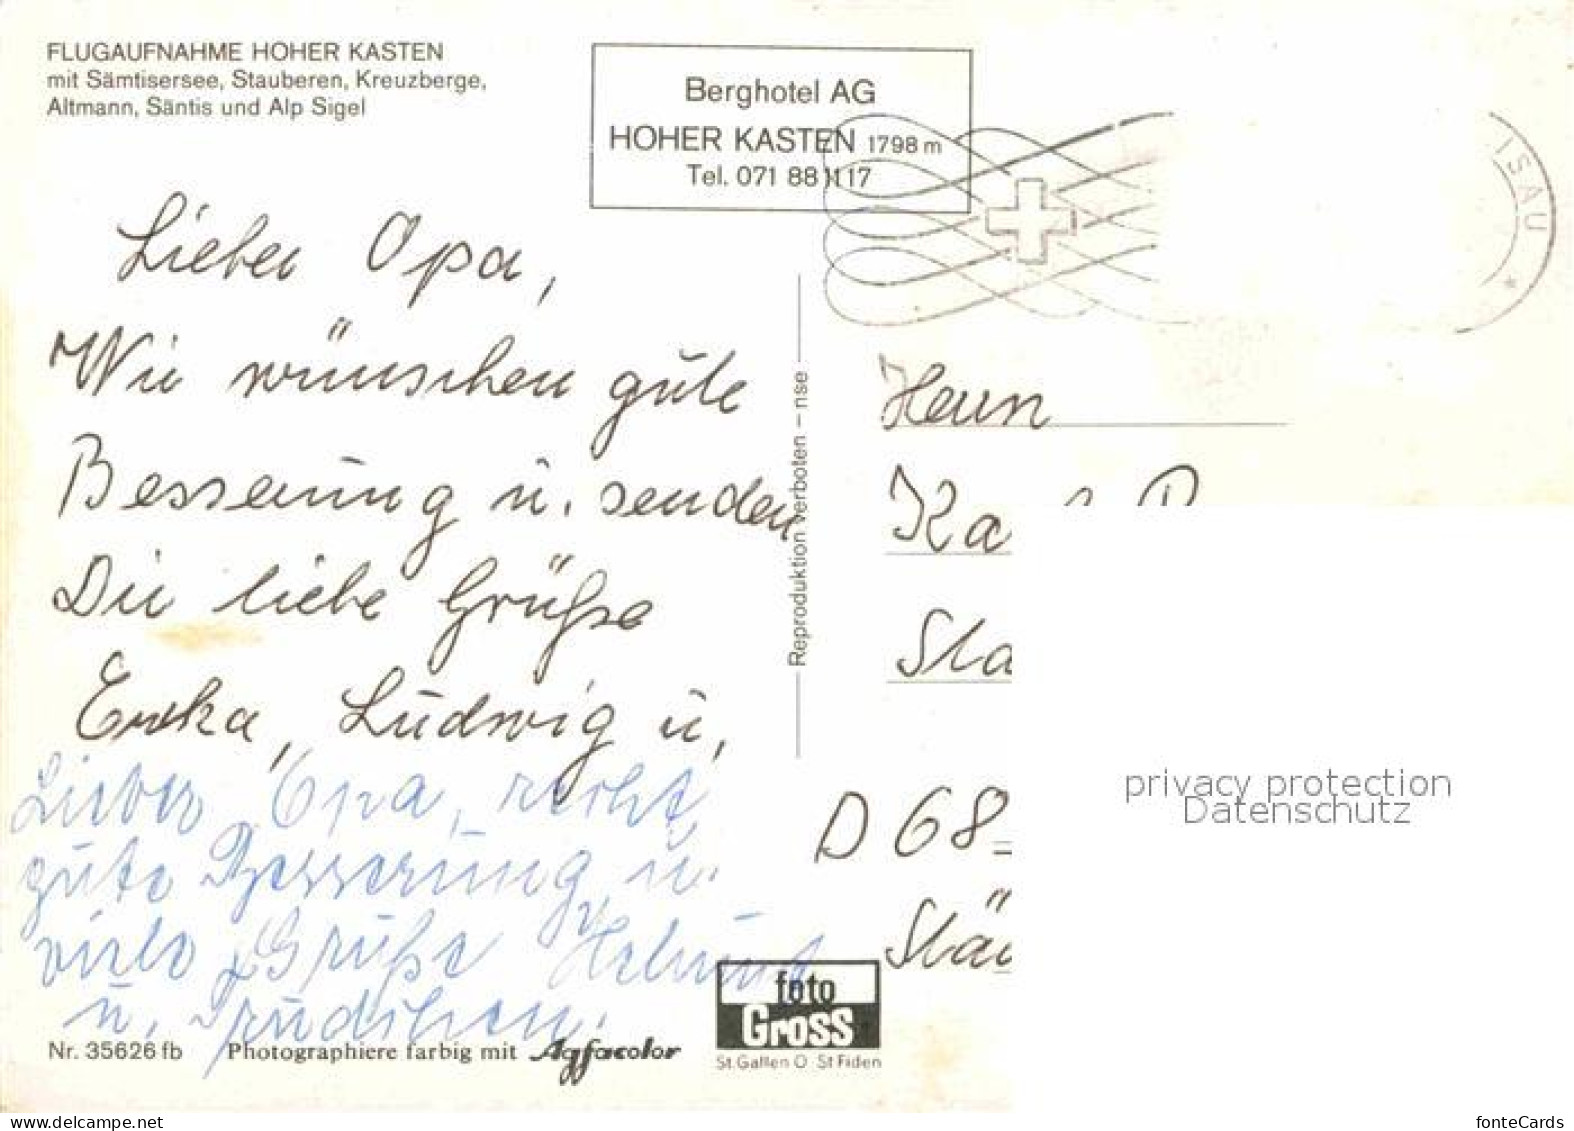 FLUGAUFNAHME HOHER KASTEN
mit Sämtisersee, Stauberen, Kreuzberge,
Altmann, Säntis und Alp Sigel
Berghotel AG
HOHER KASTEN 1798 m
Tel. 071 88 11 17
ISAU *
Lieber Opa,
Wir wünschen gute
Besserung u. senden
Dir liebe Grüße
Erika, Ludwig u,
Lieber Opa, recht
gute Besserung u.
viele Grüße Helmut
u. Trudchen.
Reproduktion verboten – nse
Herrn
Ka
Sta
D 68
Stä
privacy protection
Datenschutz
Nr. 35626 fb
Photographiere farbig mit Agfacolor
foto
Gross
St. Gallen O St Fiden
fonteCards
delcampe.net